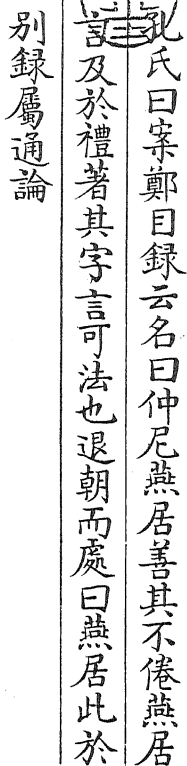 孔氏曰案鄭目録云名曰仲尼燕居善其不倦燕居
言及於禮著其字言可法也退朝而處曰燕居此於
别録屬通論